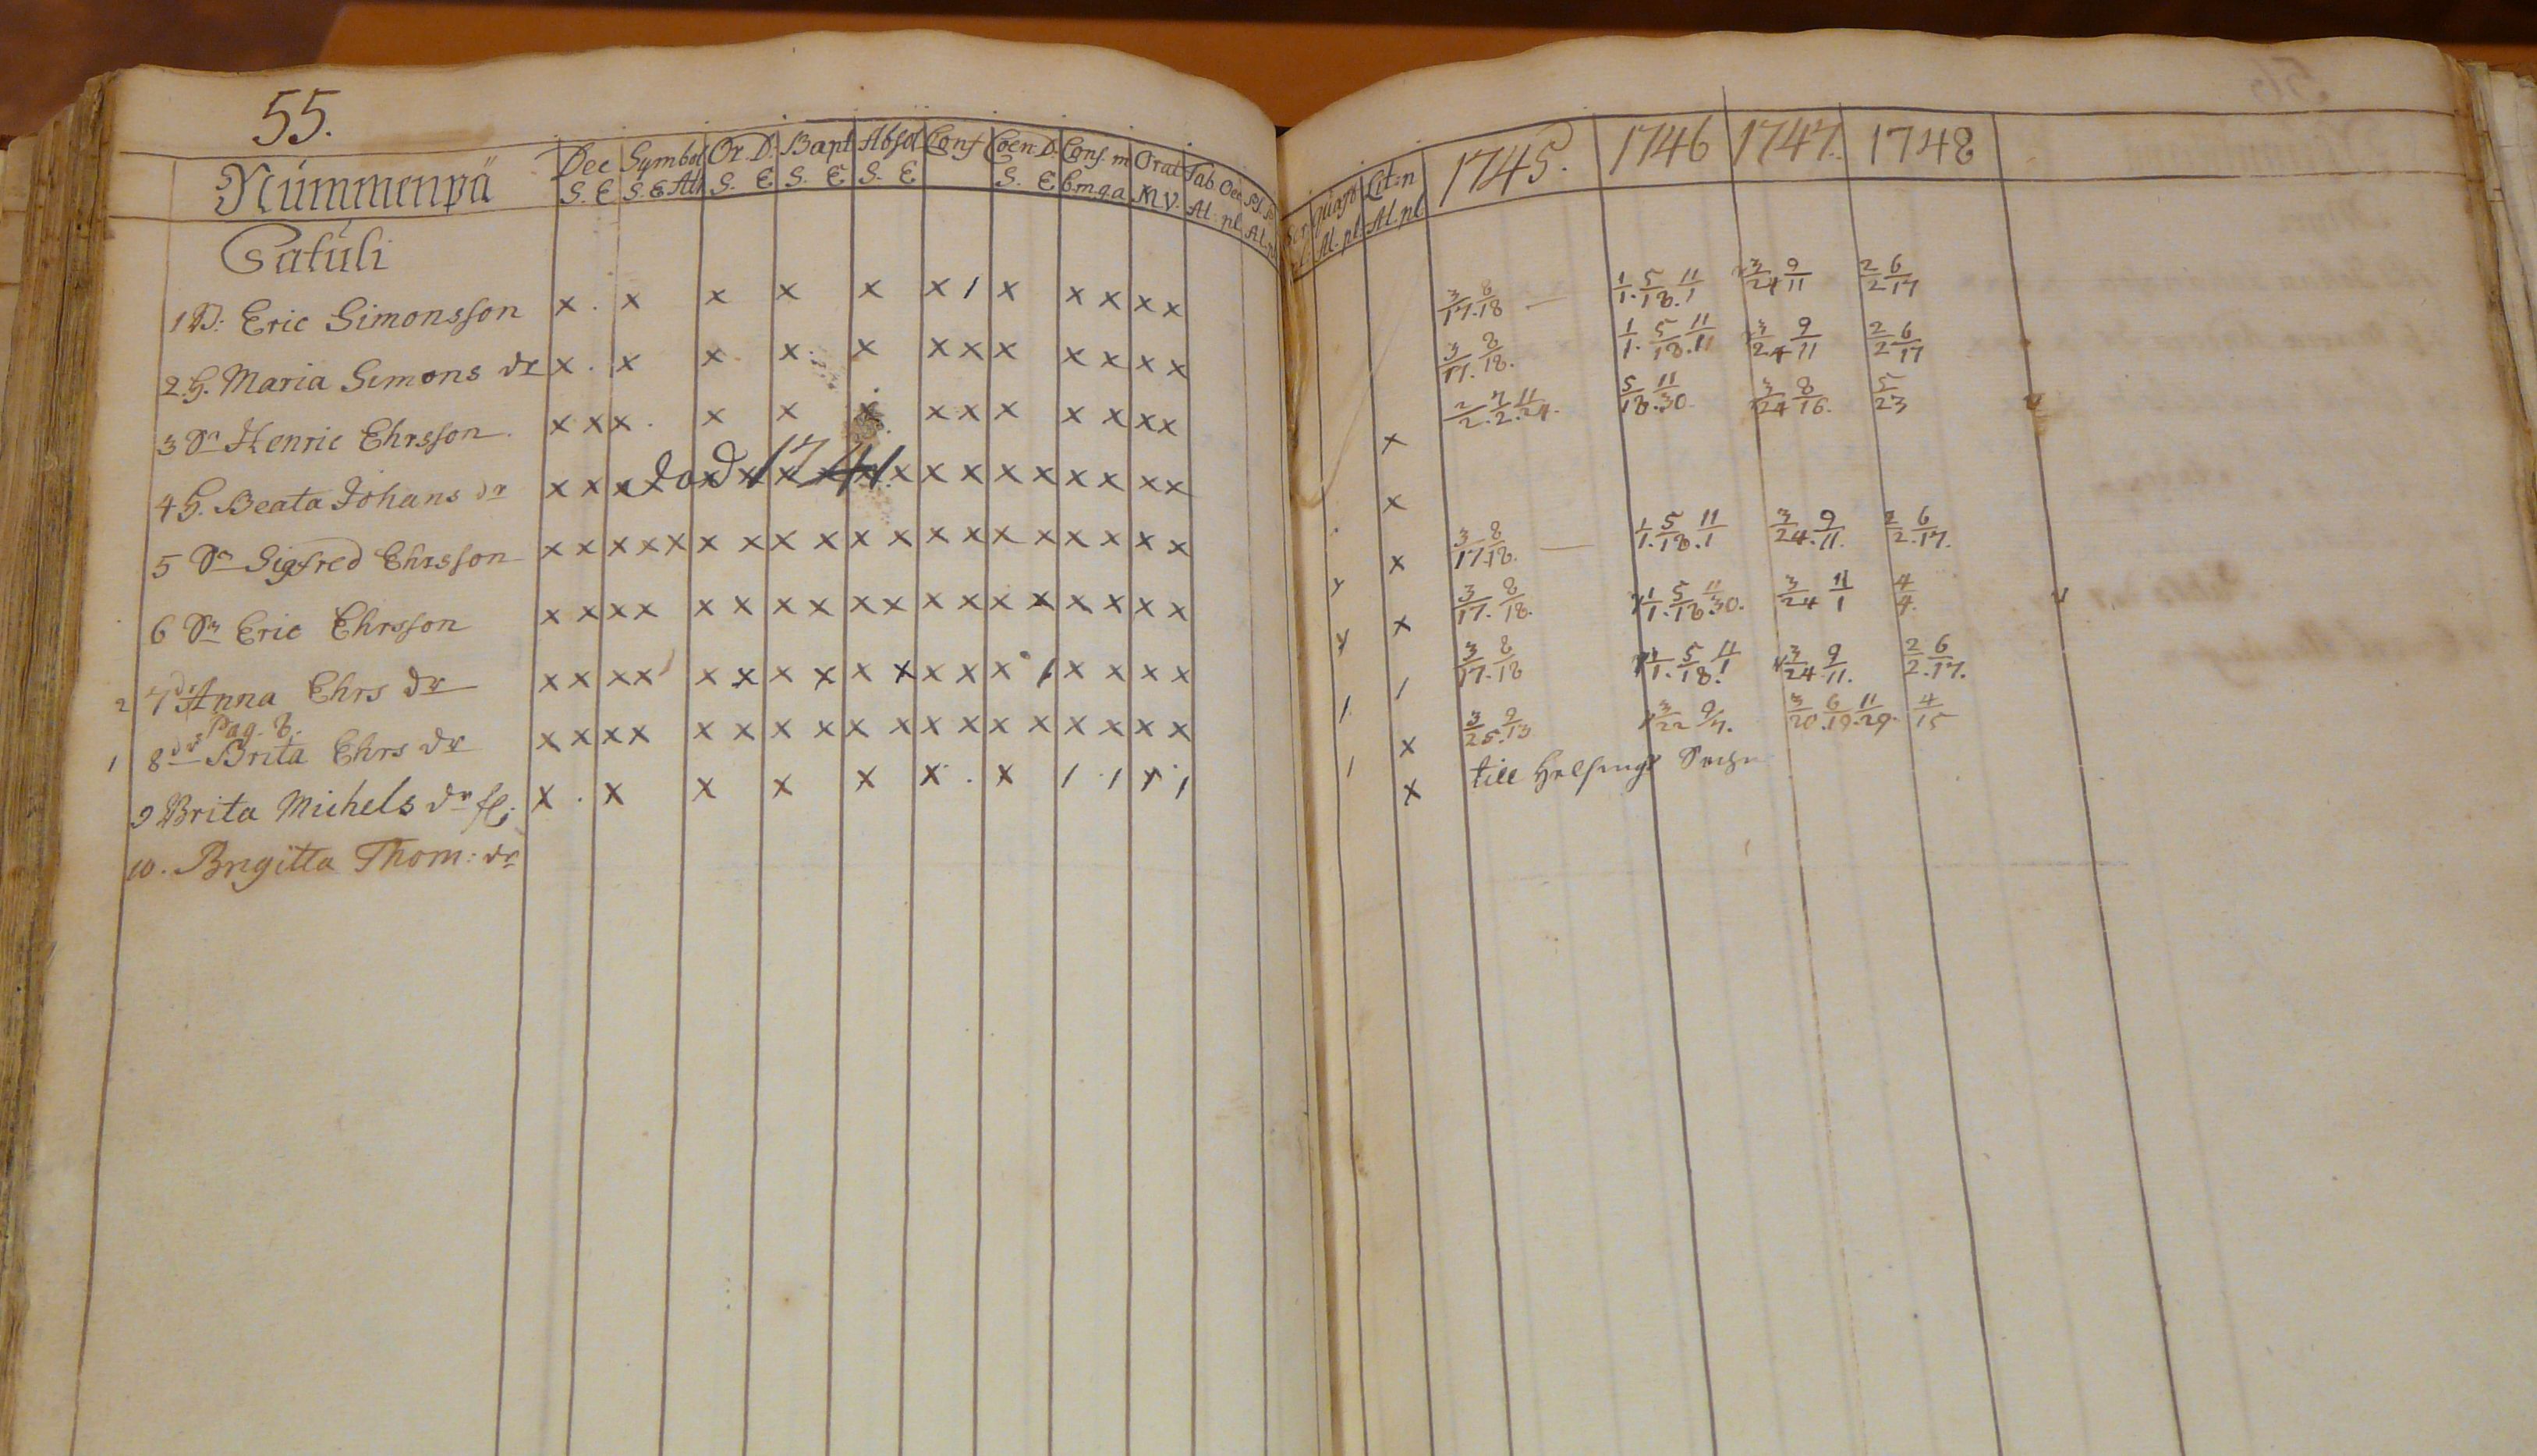 55.
Nummenpä Dec Symbol Or. D. Bapt Absol Conf Coen. D. Conf. m Orat Tab. Oec. Quaest Lit:n 1745. 1746 1747. 1748
S. E S. E Ath S. E S. E S. E S. E C.m.q.a M.V. Al. pl. Al. pl. Al. pl.
Gatuli
1 B: Eric Simonsson x . x x x x x / x x x x x 3/17. 8/18 — 1/1. 5/18. 11/1 3/24 9/11 2/2 6/17
2. H. Maria Simons dr x . x x x x x x x x x x x 3/17. 8/18. 1/1. 5/18. 11/11 3/24 9/11 2/2 6/17
3 Sn Henric Ehrsson. x x x . x x x x x x x x x x x 2/2. 7/2. 11/24. 5/18. 11/30. 3/24 8/16. 5/23
4 H. Beata Johans dr x x x död 1741. x x x x x x x x x x
5 Sn Sigfred Ehrsson x x x x x x x x x x x x x x x x x x x x 3/17. 8/18. — 1/1. 5/18. 11/1 3/24. 9/11. 2/2. 6/17.
6 Sn Eric Ehrsson x x x x x x x x x x x x x x x x x x x 3/17. 8/18. 1/1. 5/18. 11/30. 3/24 11/1 4/4.
2 7 dr Anna Ehrs dr x x x x x x x x x x x x x / x x x x / / 3/17. 8/18 1/1. 5/18. 11/1 3/24 9/11. 2/2. 6/17.
Pag. 8.
1 8 dr Brita Ehrs dr x x x x x x x x x x x x x x x x x x / x 3/25. 9/13 3/22 9/7. 3/20. 6/19. 11/29. 4/15
9 Brita Michels dr fl: x . x x x x x . x / / x / x till Helsinge Sochn
10. Brigitta Thom: dr